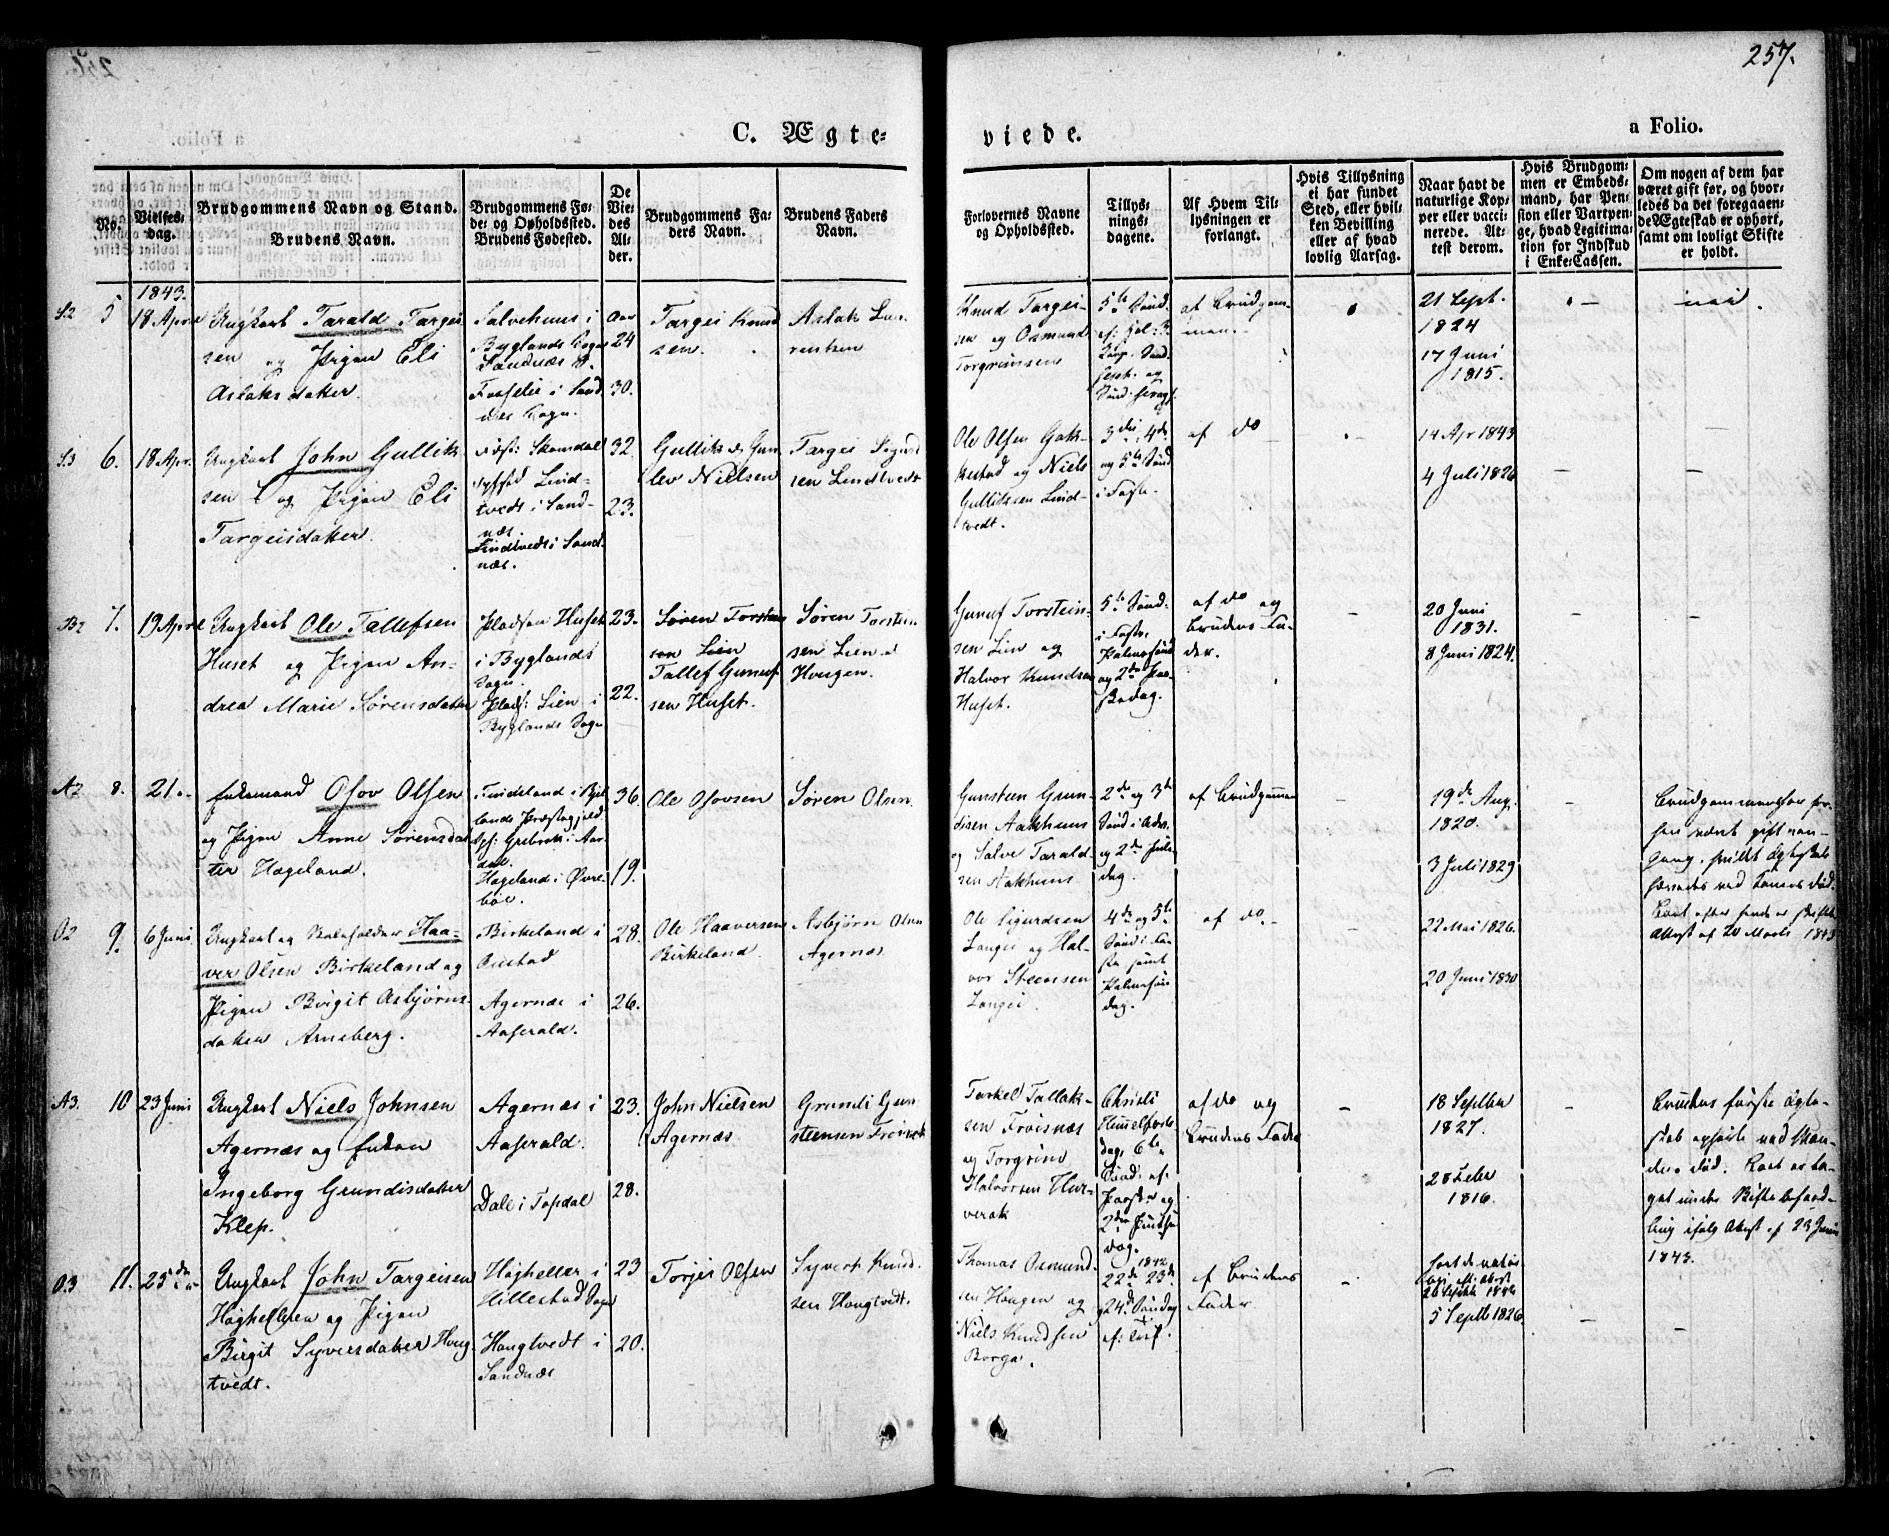 257.
C. Ægte-
viede.
a Folio.
No.
Vielses-
dag.
Brudgommens Navn og Stand.
Brudens Navn.
Brudgommens Fø-
de- og Opholdssted.
Brudens Fødested.
De
Vie-
des
Al-
der.
Brudgommens Fa-
ders Navn.
Brudens Faders
Navn.
Forlovernes Navne
og Opholdssted.
Tillys-
nings-
dagene.
Af Hvem Til-
lysningen er
forlangt.
Hvis Tillysning
ei har fundet
Sted, eller hvil-
ken Bevilling
eller af hvad
lovlig Aarsag.
Naar havt de
naturlige Kop-
per eller vacci-
nerede. At-
test derom.
Hvis Brudgom-
men er Embeds-
mand, har Pen-
sion eller Vartpen-
ge, hvad Legitima-
tion for Indskud
i Enke-Cassen.
Om nogen af dem har
været gift før, og hvor-
ledes da det foregaaen-
de Ægteskab er ophørt,
samt om lovligt Skifte
er holdt.
1843.
S2 5 18 April
Ungkarl Tarald Targei-
sen og Pigen Eli
Aslaksdatter.
Salvehuus i
Byglands Sogn
Sandnæs S.
i Sand-
næs Sogn.
Aar
24
30.
Targei Knud-
sen.
Aslak Lau-
rentsen
Knud Targei-
sen og Osmund
Torgrimsen
5te Sønd.
af Brudgom-
men.
21 Sept.
1824
17 Juni
1815.
nei.
S3 6. 18 Apr.
Ungkarl John Gullik-
sen og Pigen Eli
Targeisdatter.
Lind-
tvedt i Sand-
næs.
Lindtvedt i Sand-
næs.
32.
23.
Gullik Gun-
lev Nielsen
Targei Sigurd-
sen Lindtvedt
Ole Olsen
og Niels
Gulliksen Lind-
tvedt.
3die, 4de
og 5te Sønd
i Faste.
af do
14 Apr 1843
4 Juli 1826
B2 7. 19 April
Ungkarl Ole Tallefsen
Huset og Pigen An-
drea Marie Sørensdatter
Pladsen Huset
i Byglands
Sogn.
Plads: Lien i
Byglands Sogn
23.
22.
Søren Torstein-
sen Lien
Tallef Gunuf-
sen Huset.
Søren Torstein-
sen Lien
Haugen.
Gunuf Torstein-
sen Lien og
Halvor Knudsen
Huset.
5te Sønd:
i Faste,
Palmesønd
og 2den Paa-
skedag.
af do og
Brudens Fa-
der.
20 Juni
1831.
8 Juni 1824.
A2 8. 21
Enkemand Osov Olsen
og Pigen Anne Sørensdat-
ter Hægeland.
i Byg-
lands Præstegjeld
Hægeland i Øvre-
bøe.
36.
19.
Ole Osovsen
Søren Olsen
Gunsteen Grun-
disen Aakhuus
og Salve Tarald-
sen Aakhuus
2de og 3de
Sønd i Adv.
og 2den Jule-
dag.
af Brudgommen
19de Aug.
1820.
3 Juli 1829
Brudgommen har før-
hen været gift een-
gang, hvilket Ægteskab
hævedes ved Konens Død.
1843
O2 9. 6 Juni
Ungkarl og Haa-
ver Olsen Birkeland og
Pigen Birgit Asbjørns-
datter Arneberg.
Birkeland i
Austad
Agernæs i
Aaserald.
28.
26.
Ole Haaversen
Birkeland
Asbjørn Olsen
Agernæs
Ole Sigurdsen
Langei og Hal-
vor Steensen
Langei
4de og 5te
Sønd i Fa-
ste samt
Palmesøn-
dag.
af do.
22 Mai 1826.
20 Juni 1830
A3. 10 23 Juni
Ungkarl Niels Johnsen
Agernæs og Enken
Ingeborg Grundisdatter
Klep.
Agernæs i
Aaserald.
Dale i Topdal
23.
28.
John Nielsen
Agernæs
Grundi Gun-
steensen Frøisnæs
Tarkel Tallak-
sen Frøisnæs
og Torgrim
Halvorsen Hur-
verak
Christi
Himmelfarts-
dag, 6te
Sønd: ef.
Paaske og
2den Pintse-
dag.
af do og
Brudens Fader
18 Septbr
1827.
28 Febr
1816.
Brudens første Ægte-
skab ophørte ved Man-
dens Død. Boet er ta-
get under Skiftebehand-
ling ifølge Attest af 23 Juni
1843.
O3 11. 25de
Ungkarl John Targeisen
Høghelleren og Pigen
Birgit Syversdatter Houg-
tvedt.
Høgheller i
Hillestad Sogn
Hougtvedt i
Sandnæs
23
20.
Torjei Olsen
Syvert Knud-
sen Hougtvedt.
Thomas Osmund-
sen Haugen og
Niels Knudsen
Borga.
1842
22de 23de
og 24de Søndag
ef: Trif.
af Brudens
Fader.
5 Septb 1826